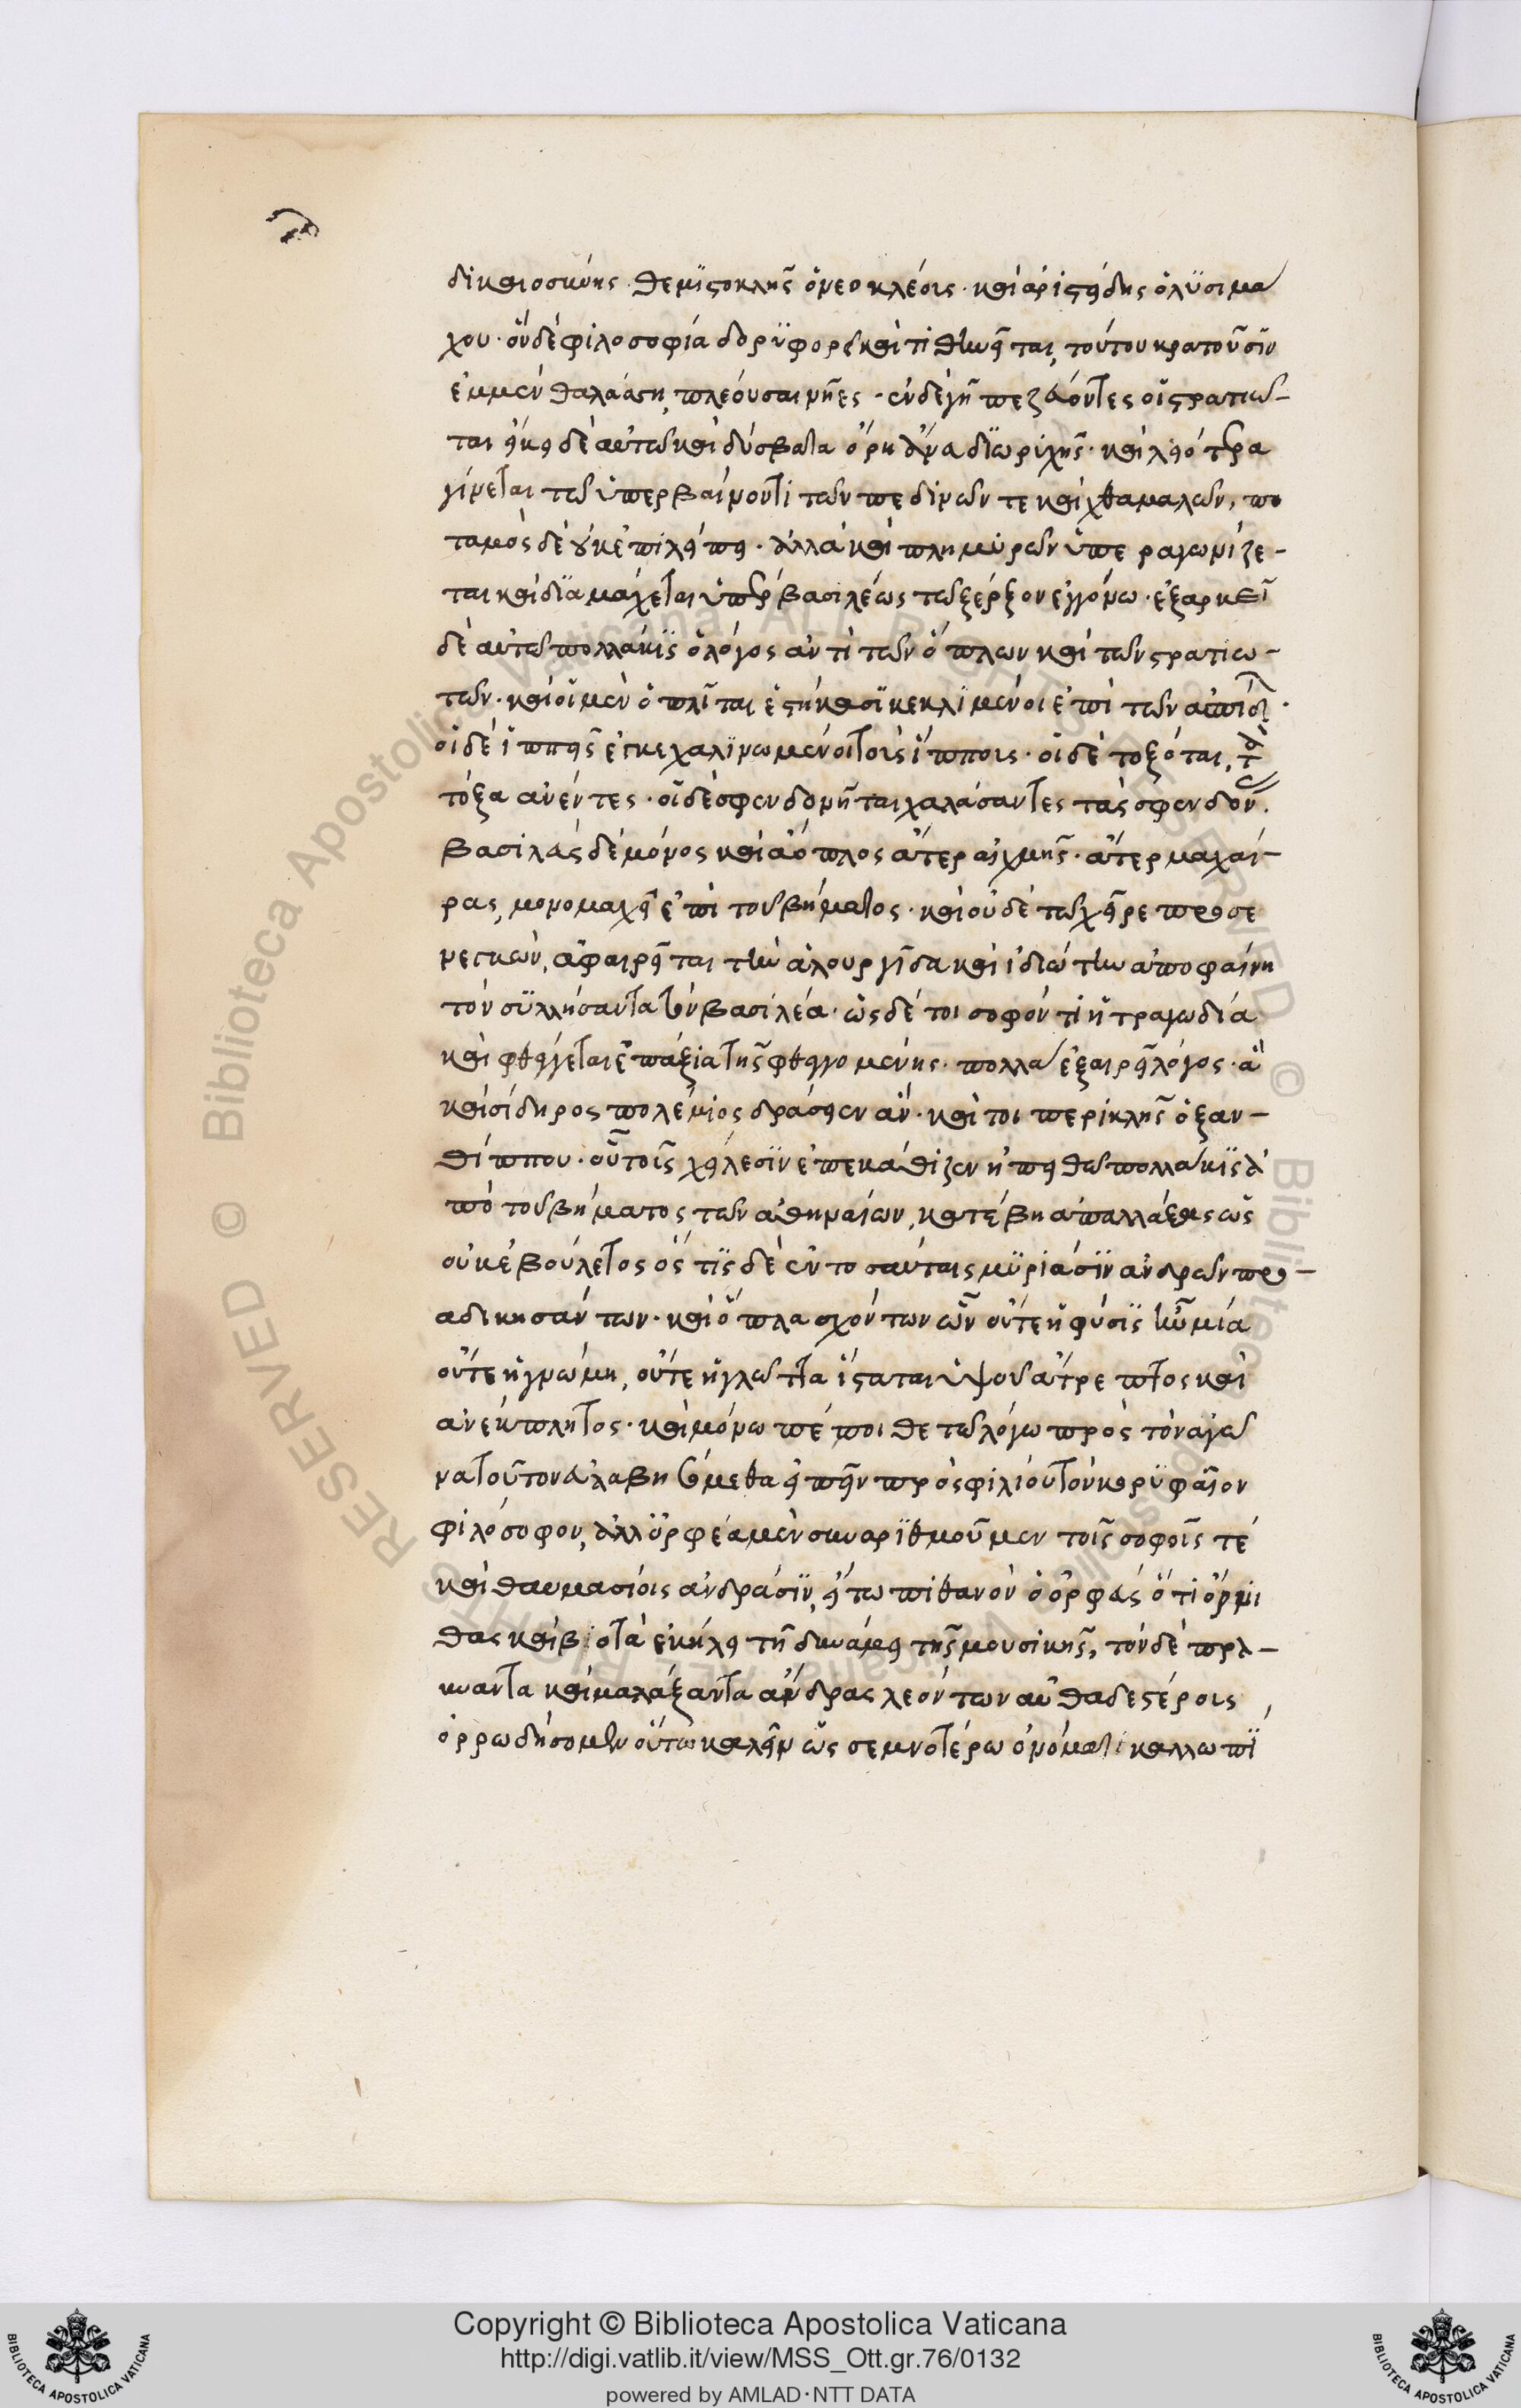 δικαιοσύνης. Θεμιστοκλῆς ὁ νεοκλέους. καὶ ἀριστείδης ὁ λυσιμά
χου. ὃν δὲ φιλοσοφία δορυφορεῖ καὶ τιθηνεῖται, τούτου κρατοῦσιν
ἐμμὲν θαλάσση πλέουσαι νῆες. ἐν δὲ γῆ πεζεύοντες οἱ στρατιῶ-
ται εἴκει δὲ αὐτῶ καὶ δύσβατα ὄρη ἄνα διωρυχῆς. καὶ λειότερα
γίνεται τῶ ὑπερβαίνοντι τῶν πεδινῶν τε καὶ χθαμαλῶν, πο
ταμὸς δὲ οὐκ ἐπιλείπει. ἀλλὰ καὶ πλημυρῶν ὑπεραγωνίζε-
ται καὶ διαμάχεται ὑπὲρ βασιλέως τῶ ξέρξου ἐγγόνω. ἐξαρκεῖ
δὲ αὐτῶ πολλάκις ὁ λόγος ἀντὶ τῶν ὅπλων καὶ τῶν στρατιω-
τῶν. καὶ οἱ μὲν ὁπλῖται ἑστήκασι κεκλιμένοι ἐπὶ τῶν ἀσπίδ.
οἱ δὲ ἱππεῖς ἐγκεχαλινωμένοι τοῖς ἵπποις. οἱ δὲ τοξόται, τὰ
τόξα ἀνέντες. οἱ δὲ σφενδονῆται χαλάσαντες τὰς σφενδόν.
βασιλεὺς δὲ μόνος καὶ ἄοπλος ἄτερ αἰχμῆς. ἄτερ μαχαί-
ρας, μονομαχεῖ ἐπὶ τοῦ βήματος. καὶ οὐδὲ τῶ χεῖρε προσε
νεγκὼν, ἀφαιρεῖται τὴν ἁλουργίδα καὶ ἰδιώτην ἀποφαίνη
τὸν συλλήσαντα τὸν βασιλέα. ὡς δέ τοι σοφόν τι ἡ τραγωδία
καὶ φθέγγεται ἐπάξια τῆς φθεγγομένης. πολλὰ ἐξαιρεῖ λόγος. ἃ
καὶ σίδηρος πολέμιος δράσειεν ἄν. καί τοι περικλῆς ὁ ξαν-
θίππου. οὗ τοῖς χείλεσιν ἐπεκάθιζεν ἡ πειθὼ πολλάκις ἀ
πὸ τοῦ βήματος τῶν ἀθηναίων, κατέβη ἀπαλλάξας ὡς
οὐκ ἐβούλετο ὅστις δὲ ἐν τοσαύταις μυριάσιν ἀνδρῶν προ-
αδικησάντων. καὶ ὅπλα σχόντων ὧν οὔτε ἡ φύσις ἦν μία
οὔτε ἡ γνώμη, οὔτε ἡ γλῶττα ἵσταται ὑψοῦ ἄτρεπτος καὶ
ἀνέκπληκτος. καὶ μόνω πέποιθε τῶ λόγω πρὸς τὸν ἀγῶ
να τοῦτον εὐλαβησόμεθα εἰπεῖν πρὸς φιλίου τὸν κορυφαῖον
φιλόσοφον, ἀλλ' ὀρφέα μὲν συναριθμοῦμεν τοῖς σοφοῖς τέ
καὶ θαυμασίοις ἀνδράσιν, εἴ τω πιθανὸν ὁ ὀρφεὺς ὅτι ὄρνι
θας καὶ βοτὰ ἐκήλει τῆ δυνάμει τῆς μουσικῆς, τὸν δὲ πραΰ-
ναντα καὶ μαλάξαντα ἄνδρας λεόντων αὐθαδεστέρους
ὀρρωδήσομεν οὕτω καλεῖν ὡς σεμνοτέρω ὀνόματι καλλωπί